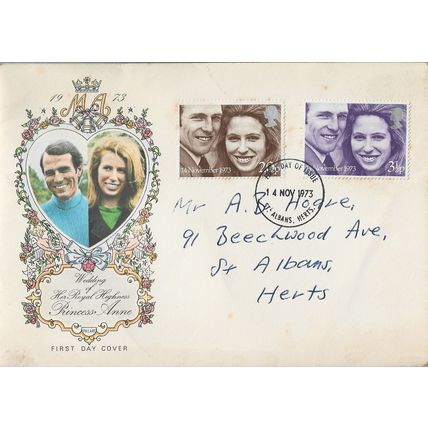 19 73
M A
14 November 1973
20p
14 November 1973
3½p
FIRST DAY OF ISSUE
14 NOV 1973
ST ALBANS, HERTS.
Mr A.B. Hogve,
91 Beechwood Ave,
St Albans,
Herts
Wedding
of
Her Royal Highness
Princess Anne
FIRST DAY COVER